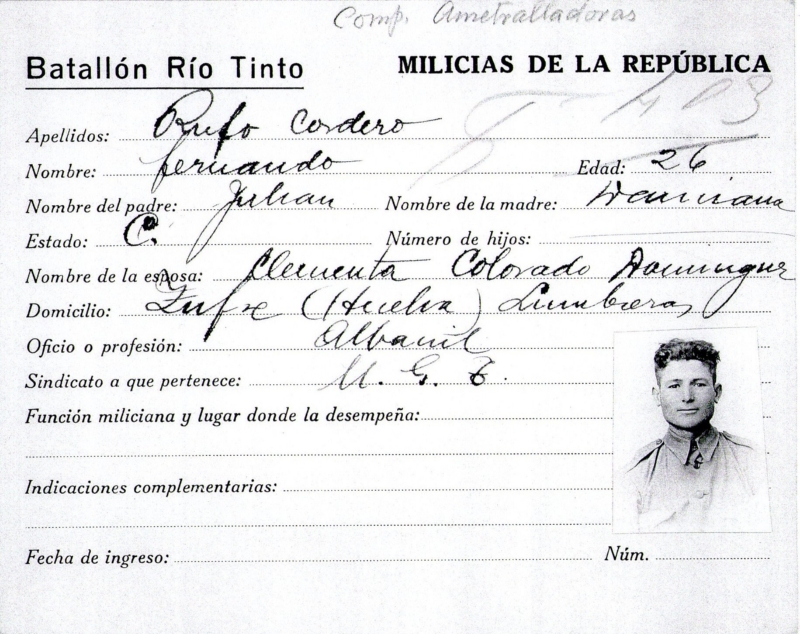 Comp. Ametralladoras
Batallón Río Tinto MILICIAS DE LA REPÚBLICA
Apellidos: Rufo Cordero 403
Nombre: fernando Edad: 26
Nombre del padre: Julian Nombre de la madre: Damiana
Estado: C. Número de hijos:
Nombre de la esposa: Clementa Colorado Dominguez
Domicilio: Zufre (Huelva) Lumbreras
Oficio o profesión: Albanil
Sindicato a que pertenece: U. G. T.
Función miliciana y lugar donde la desempeña:
Indicaciones complementarias:
Fecha de ingreso: Núm.